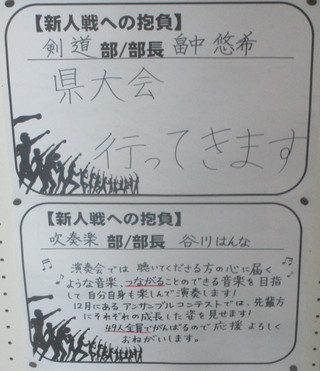 【新人戦への抱負】
剣道 部/部長 畠中 悠希
県大会
行ってきます
【新人戦への抱負】
吹奏楽 部/部長 谷川はんな
演奏会では 聴いてくださる方の心に届く
ような音楽、つながることのできる音楽を目指
して 自分自身も楽しんで演奏します!
12月にあるアンサンブルコンテストでは、先輩方
にそれぞれの成長した姿を見せます!
49人全員でがんばるので応援 よろしく
おねがいします。